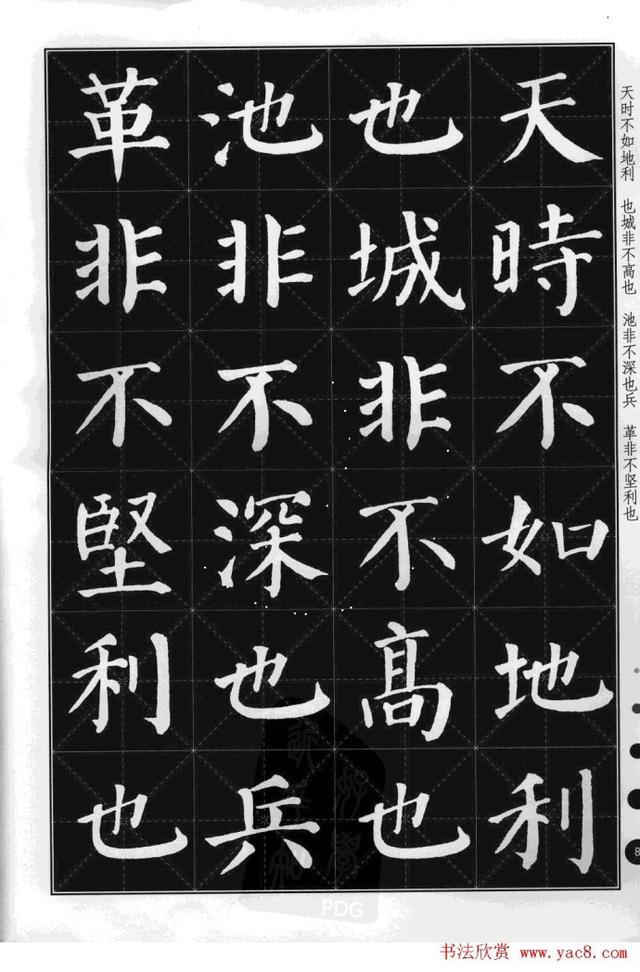 天時不如地利
也城非不高也
池非不深也兵
革非不堅利也
天时不如地利 也城非不高也 池非不深也兵 革非不坚利也
8
PDG
书法欣赏 www.yac8.com